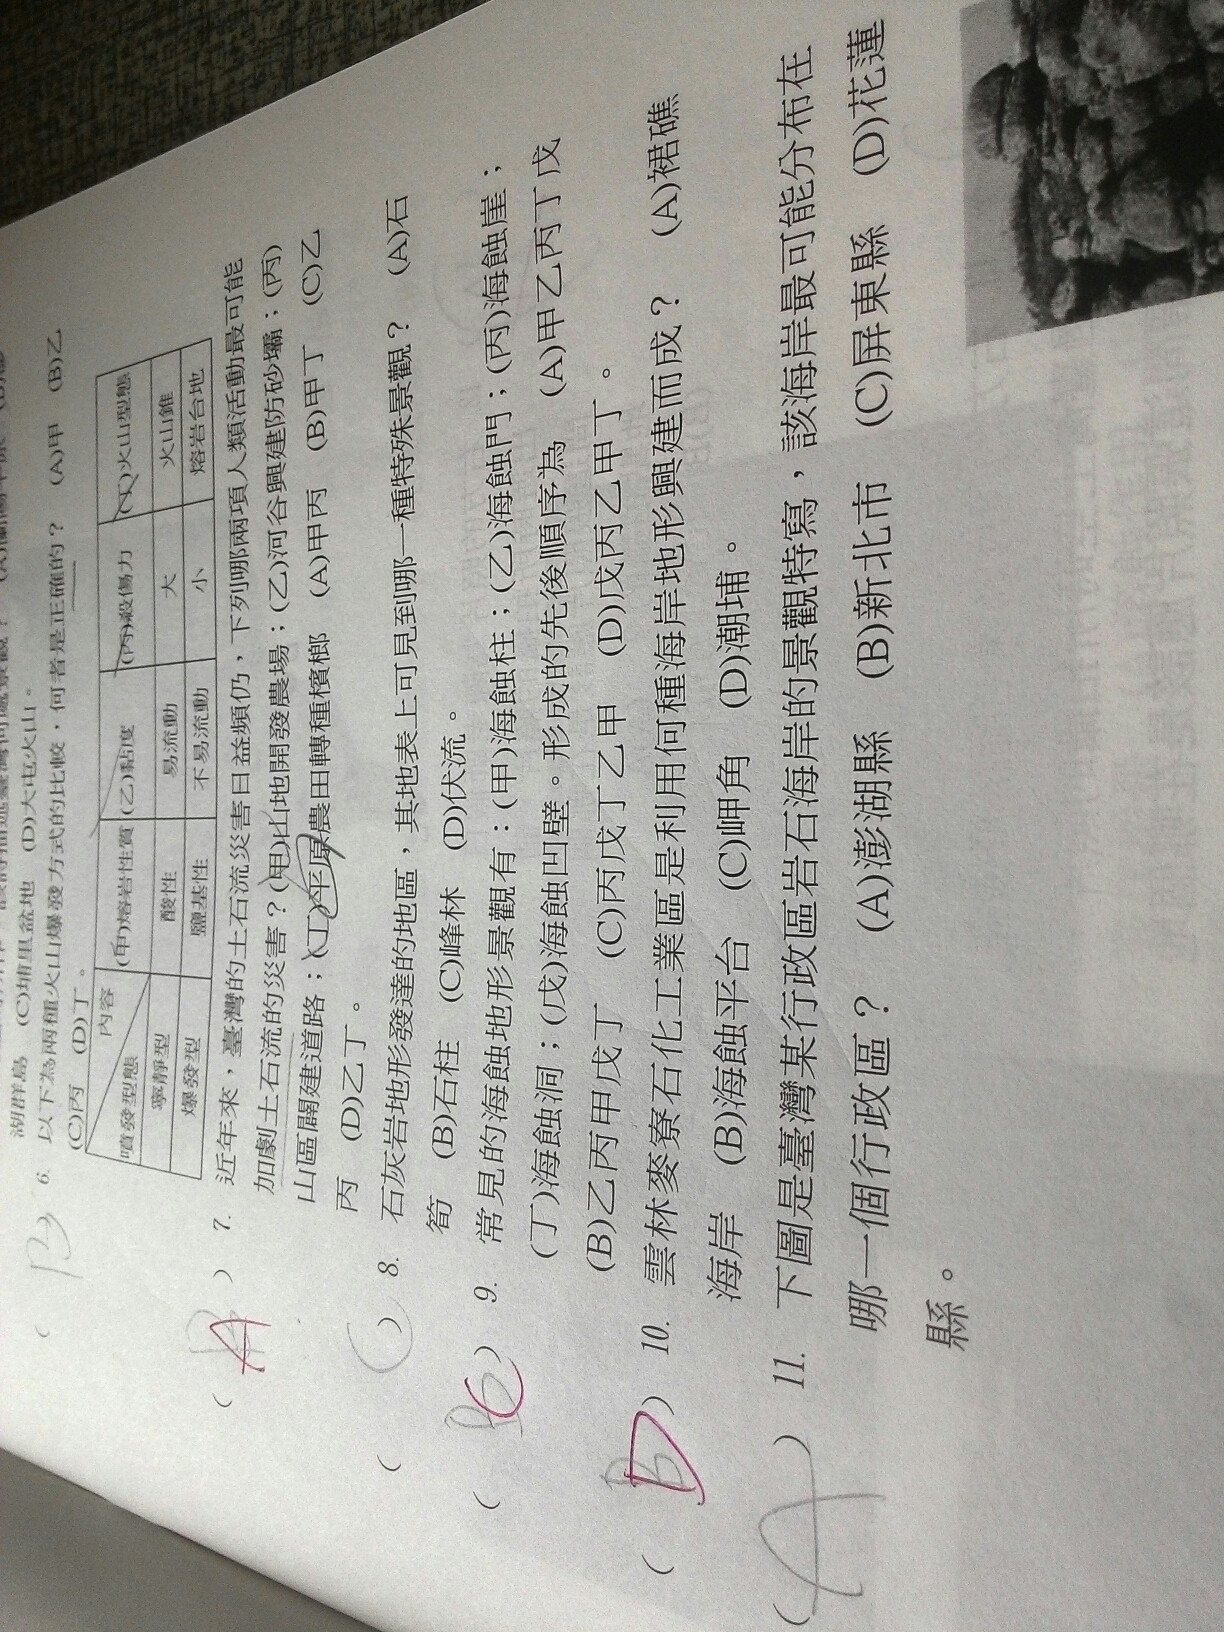 湖群島 (C)埔里盆地 (D)大屯火山。
( B 6. 以下為兩種火山爆發方式的比較，何者是正確的？ (A)甲 (B)乙
(C)丙 (D)丁。
內容 (甲)熔岩性質 (乙)黏度 (丙)殺傷力 (丁)火山型態
噴發型態
寧靜型 酸性 易流動 大 火山錐
爆發型 鹽基性 不易流動 小 熔岩台地
( A ) 7. 近年來，臺灣的土石流災害日益頻仍，下列哪兩項人類活動最可能
加劇土石流的災害？(甲)山地開發農場；(乙)河谷興建防砂壩；(丙)
山區闢建道路；(丁)平原農田轉種檳榔 (A)甲丙 (B)甲丁 (C)乙
丙 (D)乙丁。
( C ) 8. 石灰岩地形發達的地區，其地表上可見到哪一種特殊景觀？ (A)石
筍 (B)石柱 (C)峰林 (D)伏流。
( C ) 9. 常見的海蝕地形景觀有：(甲)海蝕柱；(乙)海蝕門；(丙)海蝕崖；
(丁)海蝕洞；(戊)海蝕凹壁。形成的先後順序為 (A)甲乙丙丁戊
(B)乙丙甲戊丁 (C)丙戊丁乙甲 (D)戊丙乙甲丁。
( D ) 10. 雲林麥寮石化工業區是利用何種海岸地形興建而成？ (A)裙礁
海岸 (B)海蝕平台 (C)岬角 (D)潮埔。
( A ) 11. 下圖是臺灣某行政區岩石海岸的景觀特寫，該海岸最可能分布在
哪一個行政區？ (A)澎湖縣 (B)新北市 (C)屏東縣 (D)花蓮
縣。